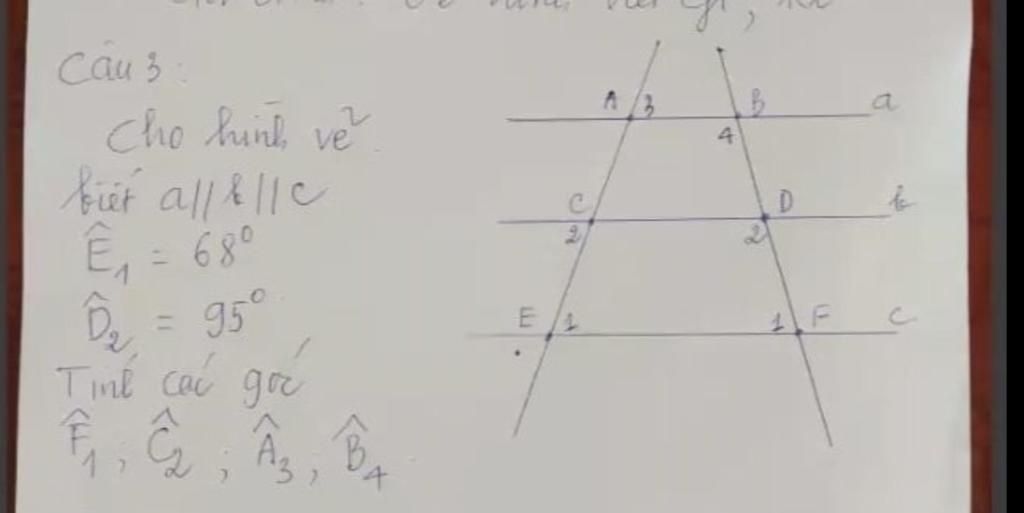 Câu 3:
Cho hình vẽ
biết a//b//c
Ê₁ = 68⁰
D̂₂ = 95⁰
Tính các góc
F̂₁ ; Ĉ₂ ; Â₃ ; B̂₄
A 3 B a
4
C D b
2 2
E 1 1 F c